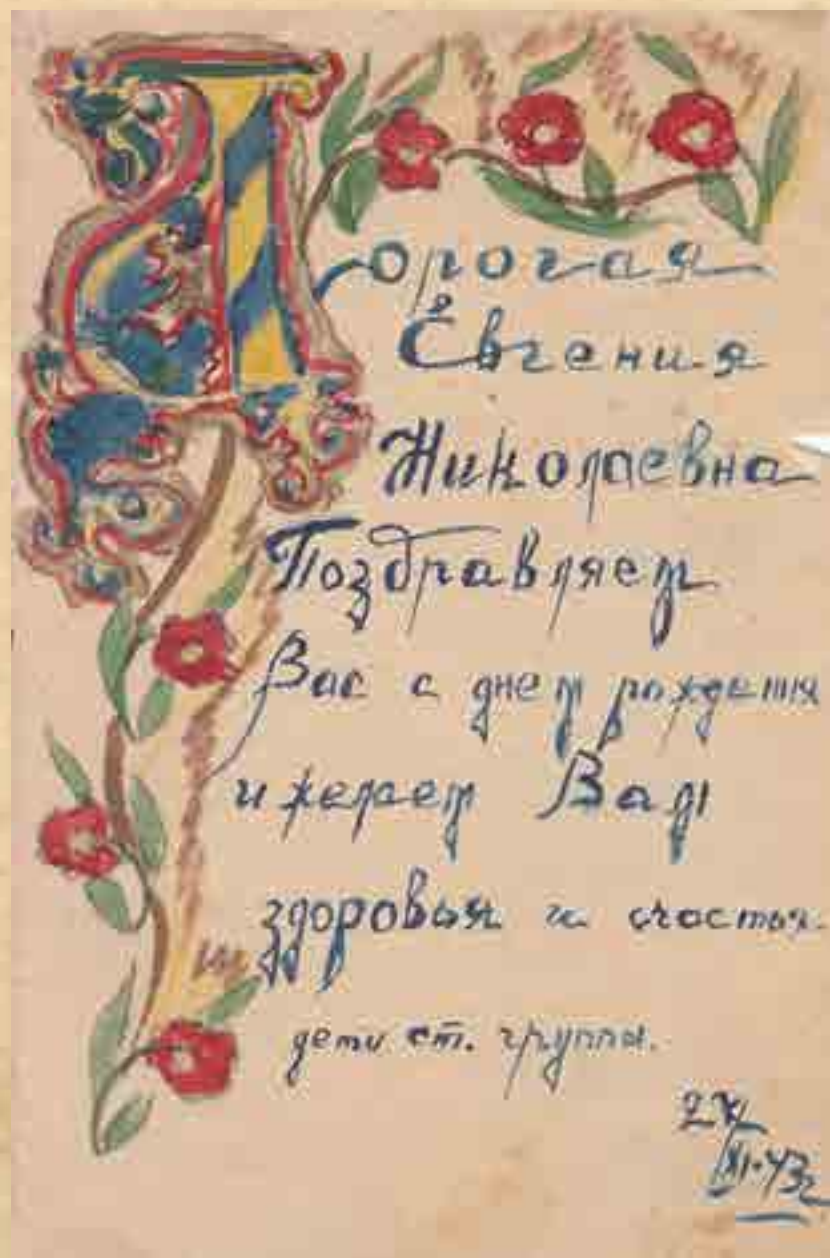 Дорогая
Евгения
Николаевна
Поздравляем
Вас с днем рождения
и желаем Вам
здоровья и счастья
дети ст. группы.
XI-43г